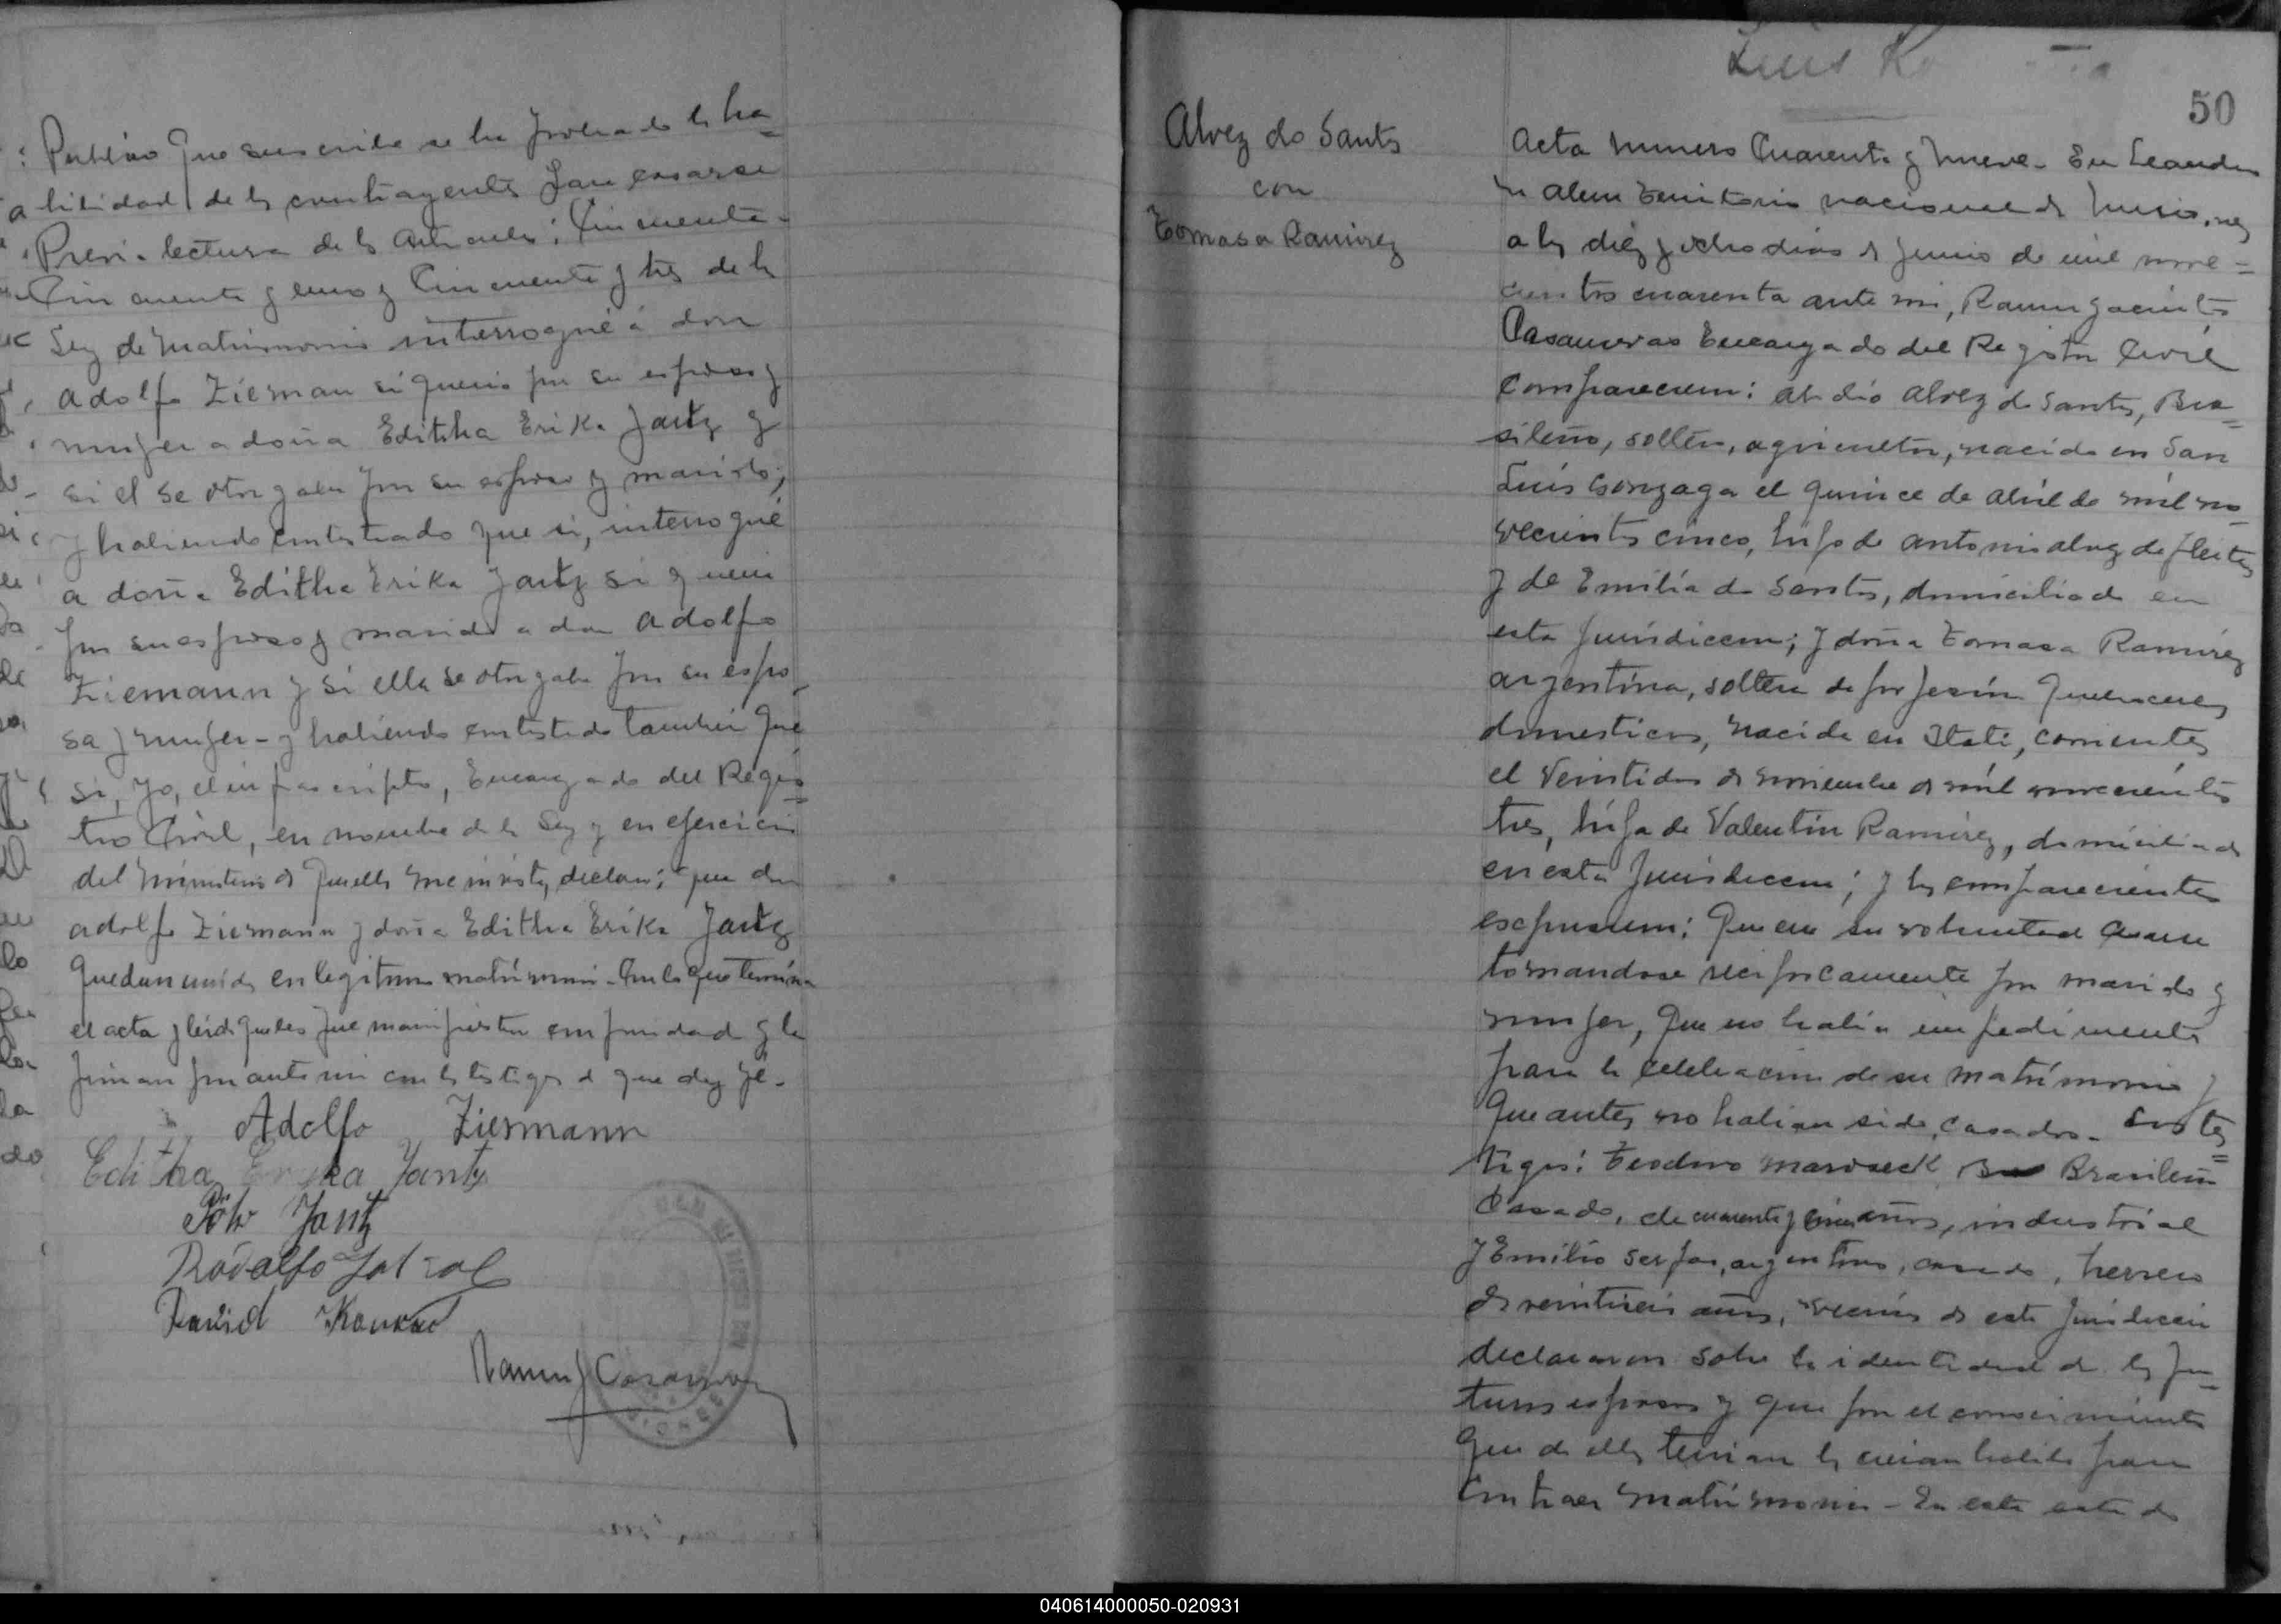 Publico que suscribe se ha probado la ha=
bilidad de los contrayentes para casarse
Previa lectura de los articulos: Cincuenta-
Cincuenta y uno y Cincuenta y tres de la
Ley de Matrimonio interrogué á don
Adolfo Zieman si queria por su esposa y
mujer a doña Editha Erika Jantz y
si el se otorgaba por su esposo y marido;
y habiendo contestado que si, interrogué
a doña Editha Erika Jantz si queria
por su esposo y marido a don Adolfo
Ziemann y si ella se otorgaba por su espo-
sa y mujer - y habiendo contestado tambien que
si, yo, el infrascripto, Encargado del Regis=
tro Civil, en nombre de la Ley y en ejercicio
del ministerio de que ella me inviste, declaro; que don
Adolfo Ziemann y doña Editha Erika Jantz
quedan unidos en legitimo matrimonio - Con lo que termina
el acta y leida que les fue manifiestan conformidad y la
firman por ante mi con los testigos de que doy fé.
Adolfo Ziermann
Editha Jantz
Jantz
Rodolfo
David
Ramon J Casanovas
Luis
50
Alvez do Santos
con
Tomasa Ramirez
Acta numero Cuarenta y nueve - En Leandro
N Alem Territorio nacional de Misiones
a los diez y ocho dias de Junio de mil nove=
cientos cuarenta ante mi, Ramon Jacinto
Casanovas Encargado del Registro Civil
Comparecieron: Abdió Alvez do Santos, Bra=
sileño, soltero, agricultor, nacido en San
Luis Gonzaga el quince de abril de mil no-
vecientos cinco, hijo de Antonio Alvez de
y de Emilia do Santos, domiciliado en
esta Jurisdiccion; y doña Tomasa Ramirez
argentina, soltera de profesión quehaceres
domesticos, nacida en Itati, Corrientes
el veintidos de noviembre de mil novecientos
tres, hija de Valentin Ramirez, domiciliada
en esta Jurisdiccion; y los comparecientes
expusieron: Que era su voluntad casarse
tomandose reciprocamente por marido y
mujer, que no habia impedimento
para la celebracion de su matrimonio y
que antes no habian sido casados - Los tes=
tigos: Teodoro Brasileño
Casado, de cuarenta y cinco años, industrial
y Emilio argentino, casado, herrero
de veintiseis años, vecinos de esta Jurisdiccion
declararon sobre la identidad de los fu-
turos esposos y que por el conocimiento
que de ellos tenian los creian habiles para
contraer matrimonio - En este estado
040614000050-020931